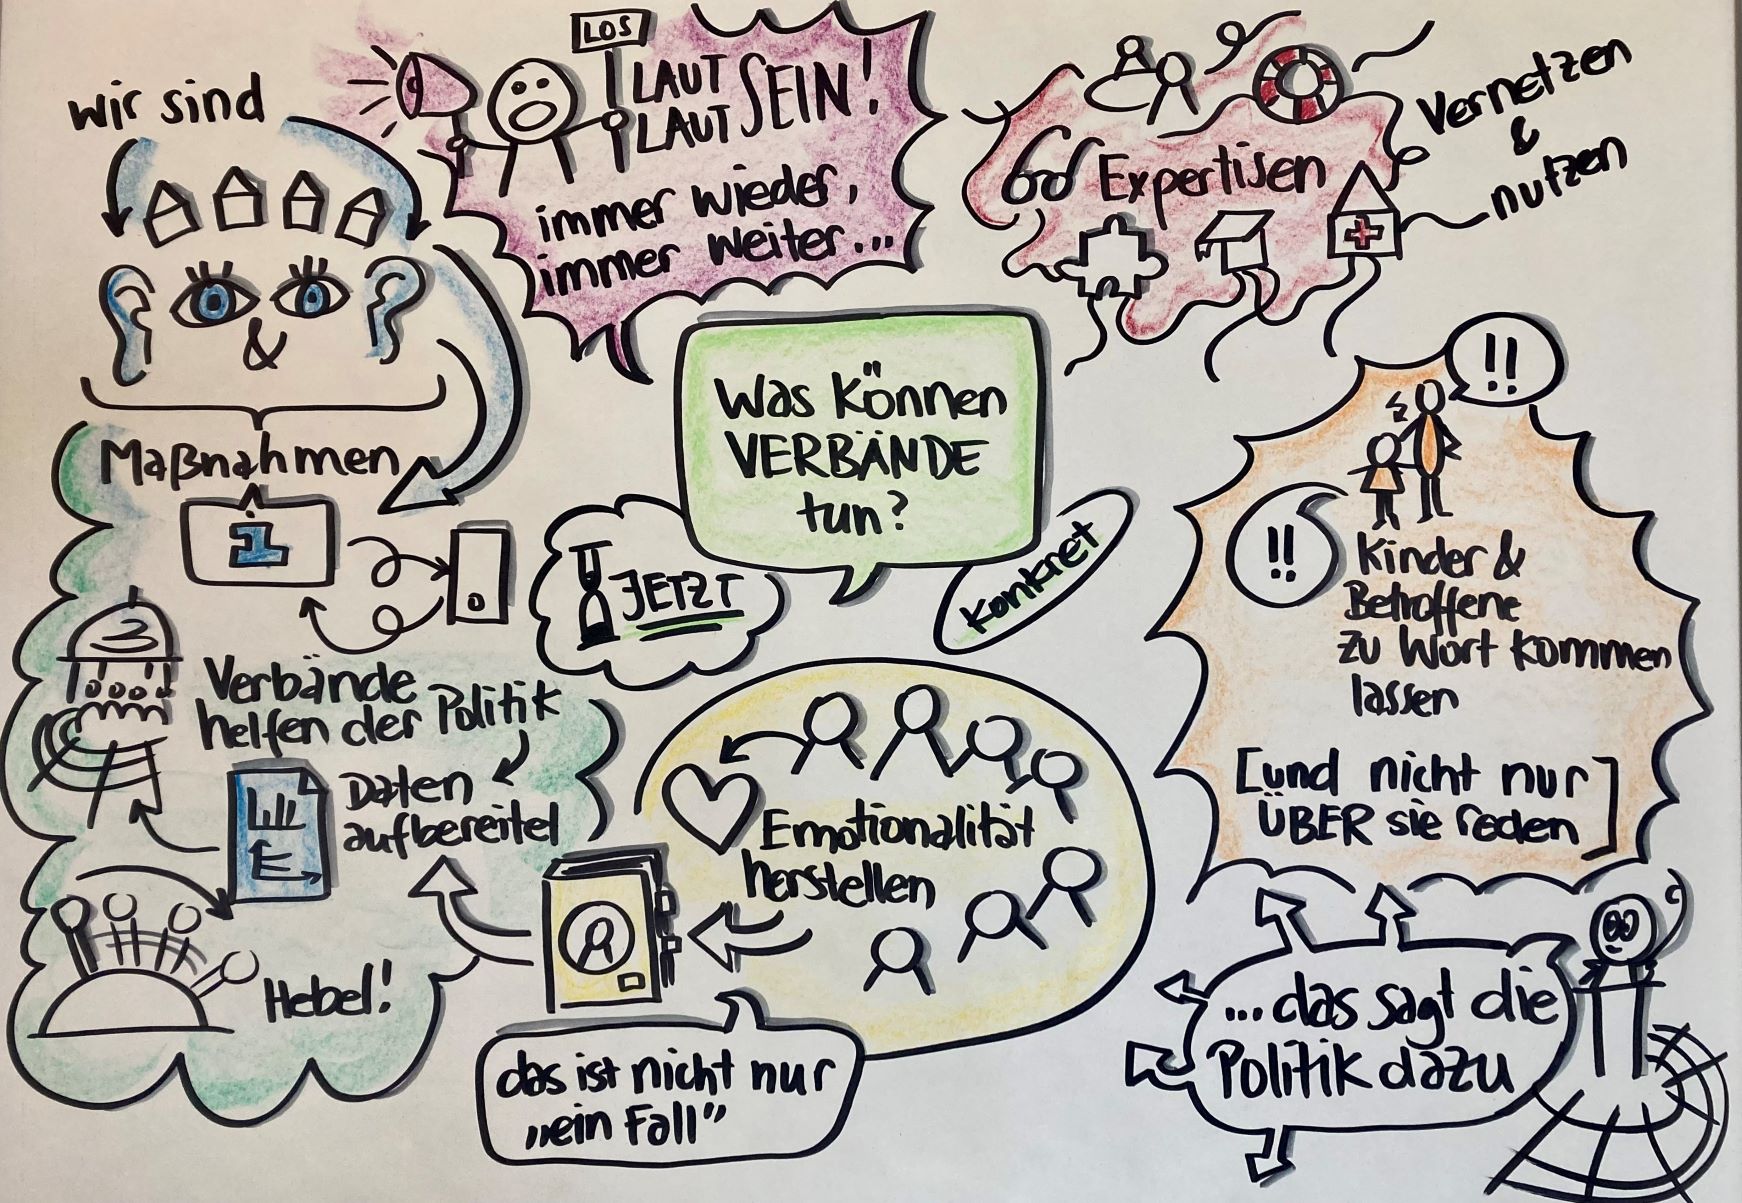 wir sind
&
Maßnahmen
1
LOS
LAUT
LAUT SEIN!
immer wieder,
immer weiter...
Expertisen
Vernetzen
&
nutzen
Was können
VERBÄNDE
tun?
JETZT
konkret
!!
!!
Kinder &
Betroffene
zu Wort kommen
lassen
[und nicht nur
ÜBER sie reden]
Verbände
helfen der Politik
Daten
aufbereitet
Hebel!
Emotionalität
herstellen
das ist nicht nur
„ein Fall”
...das sagt die
Politik dazu